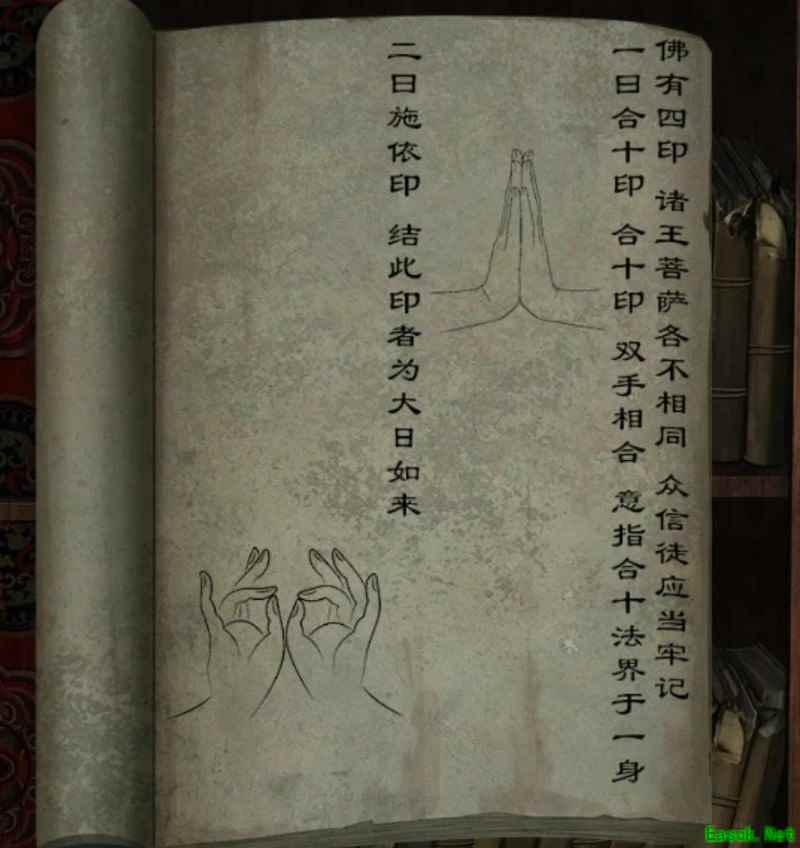 佛有四印 诸王菩萨各不相同 众信徒应当牢记
一曰合十印 合十印 双手相合 意指合十法界于一身
二曰施依印 结此印者为大日如来
Easck.Net